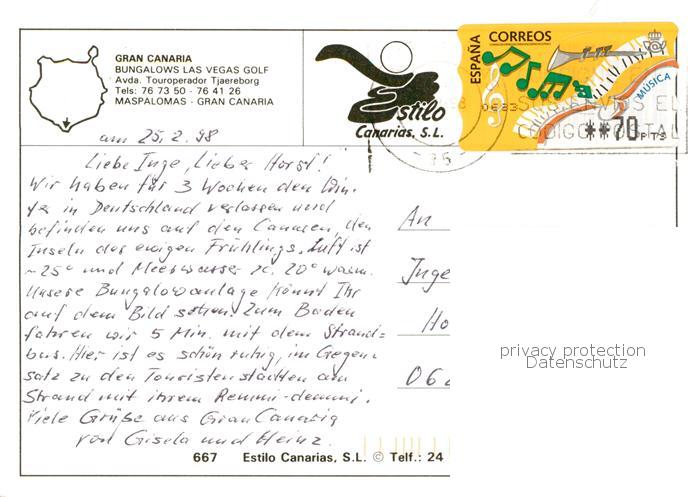 GRAN CANARIA
BUNGALOWS LAS VEGAS GOLF
Avda. Touroperador Tjaereborg
Tels: 76 73 50 - 76 41 26
MASPALOMAS - GRAN CANARIA
Estilo
Canarias, S.L.
ESPAÑA
CORREOS
MÚSICA
**70 PTS
CODIGO POSTAL
75
am 25.2.98
Liebe Inge, Lieber Horst!
Wir haben für 3 Wochen den Win-
ter in Deutschland verlassen und
befinden uns auf den Canaren, den
Inseln des ewigen Frühlings. Luft ist
~25° und Meerwasser ca. 20° warm.
Unsere Bungalowanlage könnt Ihr
auf dem Bild sehen. Zum Baden
fahren wir 5 Min. mit dem Strand=
bus. Hier ist es schön ruhig, im Gegen-
satz zu den Touristenstädten am
Strand mit ihrem Remmi-demmi.
Viele Grüße aus Gran Canaria
von Gisela und Heinz.
An
Inge
Ho
06
privacy protection
Datenschutz
667 Estilo Canarias, S.L. © Telf.: 24